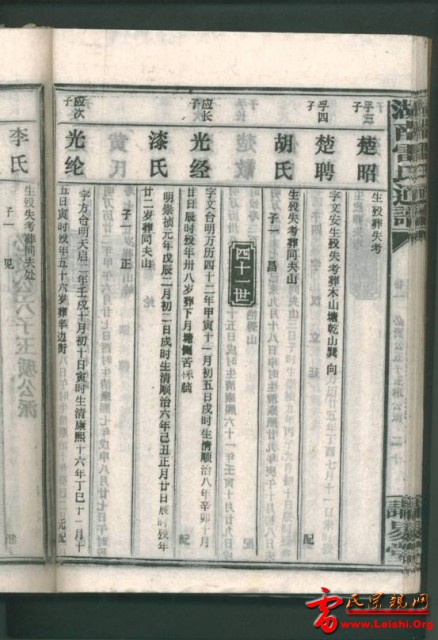 湖南雷氏通谱
孚三子
楚昭
生殁失考
孚四子
楚聘
字文安生殁失考葬木山塘乾山巽向
配
胡氏
生殁失考葬同夫山
子一
昌
四十一世
应长子
光经
字文台明万历四十二年甲寅十一月初五日戌时生清顺治八年辛卯十月
廿日辰时殁年卅八岁葬下月塘侧
配
漆氏
明崇祯元年戊辰二月初二日戌时生清顺治六年己丑正月廿日辰时殁年
廿二岁葬同夫山
子一
正
应次子
光纶
字方台明天启二年壬戌十月初十日寅时生清康熙十六年丁巳十一月十
五日寅时殁年五十六岁葬
配
李氏
生殁失考葬同夫处
子一
见
雷氏宗亲网
www.Leishi.Org